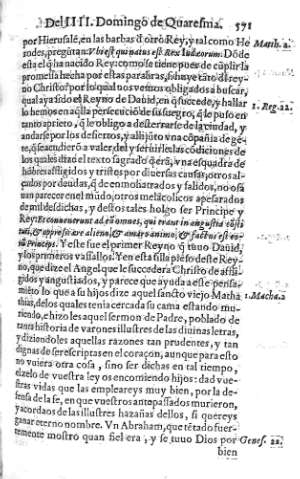 Del IIII. Domingo de Quaresma. 571
por Hierusalé, en las barbas d' otro Rey, y tal como He
rodes, pregútan: Vbi est qui natus est Rex Iudæorum: Dóde Matth. 2.
esta el q ha nacido Rey: como se tiene pues de cúplir la
promessa hecha por estas parabras,
no Christo? por lo qual nos vemos obligados a buscar,
qual aya sido el Reyno de Dauid, en q succede, y hallar
lo hemos en aqlla persecució de su suegro, q le puso en 1. Reg. 22.
tanto aprieto, q le obligo a desterrarse de la ciudad, y
andarse por los desiertos, y alli jútò vna cópañia de gé-
te, q se acudieró a valer del y seruirle, las códiciones de
los quales dize el texto sagrado q erá, vna esquadra de
hóbres affligidos y tristes por diuersas causas, otros al-
cáçados por deudas, q de enmohatrados y falidos, no osa
uan parecer en el múdo, otros melácolicos apesarados
de mil desdichas, y destos tales holgo ser Principe y
Rey: Et conuenerunt ad eum omnes, qui erant in angustia costi
tuti, & oppressi ære alieno, & amaro animo, & factus est eo
rú Princeps. Y este fue el primer Reyno q tuuo Dauid,
y los primeros vassallos. Y en esta silla y solio deste Rey-
no, que dize el Angel que le succedera Christo de affli-
gidos y angustiados, y parece que ayuda a este pensa-
mièto lo que a su hijos dize aquel sancto viejo Matha 1. Macha. 2
thias, delos quales tenia cercada su cama estando mu-
riendo, e hizo les aquel sermon de Padre, poblado de
tanta historia de varones illustres de las diuinas letras,
y diziendoles aquellas razones tan prudentes, y tan
dignas de ser impressas en el coraçon, aunque para esto
no vuiera otra cosa, sino ser dichas en tal tiempo,
el zelo de vuestra ley os encomiendo hijos: dad vue-
stras vidas que las empleareys muy bien, por la de-
fensa de la fe, en que vuestros antepassados murieron,
y acordaos de las illustres hazañas dellos, si quereys
ganar eterno nombre. Vn Abraham, que tétado fuer-
temente mostro quan fiel era, y se tuuo Dios por Genes. 22.
bien